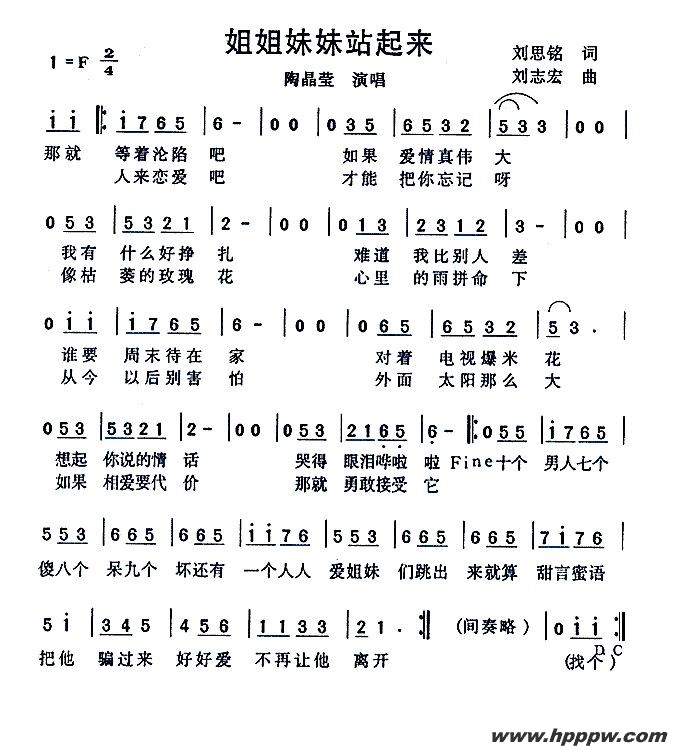 姐姐妹妹站起来
1=F 2/4
刘思铭 词
陶晶莹 演唱
刘志宏 曲
i i |: i 7 6 5 | 6 - | 0 0 | 0 3 5 | 6 5 3 2 | 5 3 3 | 0 0 |
那就 等着沦陷 吧 如果 爱情真伟 大
人来恋爱 吧 才能 把你忘记 呀
0 5 3 | 5 3 2 1 | 2 - | 0 0 | 0 1 3 | 2 3 1 2 | 3 - | 0 0 |
我有 什么好挣 扎 难道 我比别人 差
像枯 萎的玫瑰 花 心里 的雨拼命 下
0 i i | i 7 6 5 | 6 - | 0 0 | 0 6 5 | 6 5 3 2 | 5 3 . |
谁要 周末待在 家 对着 电视爆米 花
从今 以后别害 怕 外面 太阳那么 大
0 5 3 | 5 3 2 1 | 2 - | 0 0 | 0 5 3 | 2 1 6 5 | 6 - |: 0 5 5 | i 7 6 5 |
想起 你说的情 话 哭得 眼泪哗啦 啦 Fine 十个 男人七个
如果 相爱要代 价 那就 勇敢接受 它
5 5 3 | 6 6 5 | 6 6 5 | i i 7 6 | 5 5 3 | 6 6 5 | 6 6 5 | 7 i 7 6 |
傻八个 呆九个 坏还有 一个人人 爱姐妹 们跳出 来就算 甜言蜜语
5 i | 3 4 5 | 4 5 6 | 1 1 3 3 | 2 1 . :| (间奏略) | 0 i i ‖
把他 骗过来 好好爱 不再让他 离开 (找个)
D C
www.hpppw.com